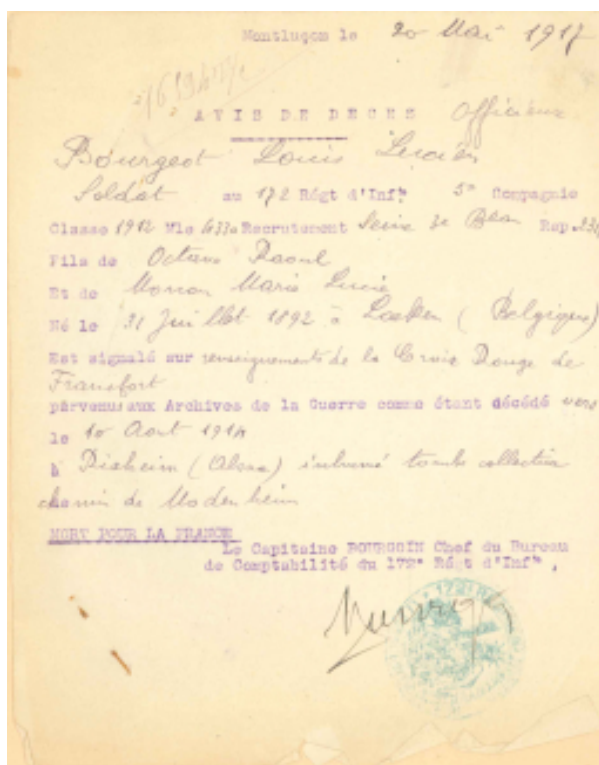 Montluçon le 20 Mai 1917
AVIS DE DECES Officieux
Bourgeot Louis Lucien
Soldat au 172 Régt d'Infie 5e Compagnie
Classe 1912 Mle 433 Recrutement Seine 3e Bean Rep
Fils de Octave Raoul
Et de Morron Marie Lucie
Né le 31 Juillet 1892 à Laeken (Belgique)
Est signalé sur renseignements de la Croix Rouge de
Francfort
parvenus aux Archives de la Guerre comme étant décédé vers
le 10 Aout 1914
à Rixheim (Alsace) inhumé tombe collective
chemin de Modenheim
MORT POUR LA FRANCE
Le Capitaine BOURGOIN Chef du Bureau
de Comptabilité du 172e Régt d'Infie,